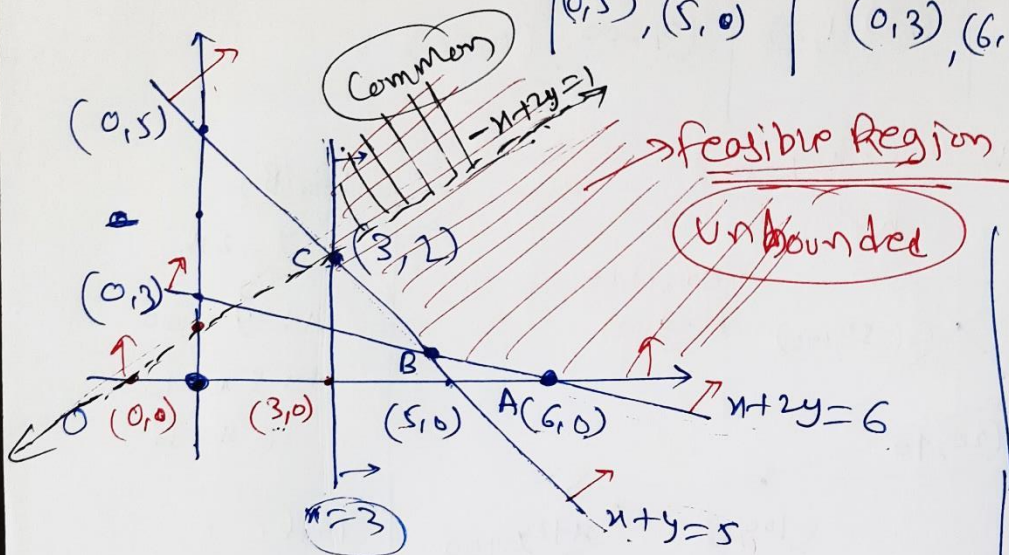 (0,5), (5,0) | (0,3), (6,
Common
-x+2y=1
(0,5)
feasible Region
Unbounded
C (3,2)
(0,3)
B
(0,0) (3,0) (5,0) A(6,0)
x+2y=6
x=3
x+y=5